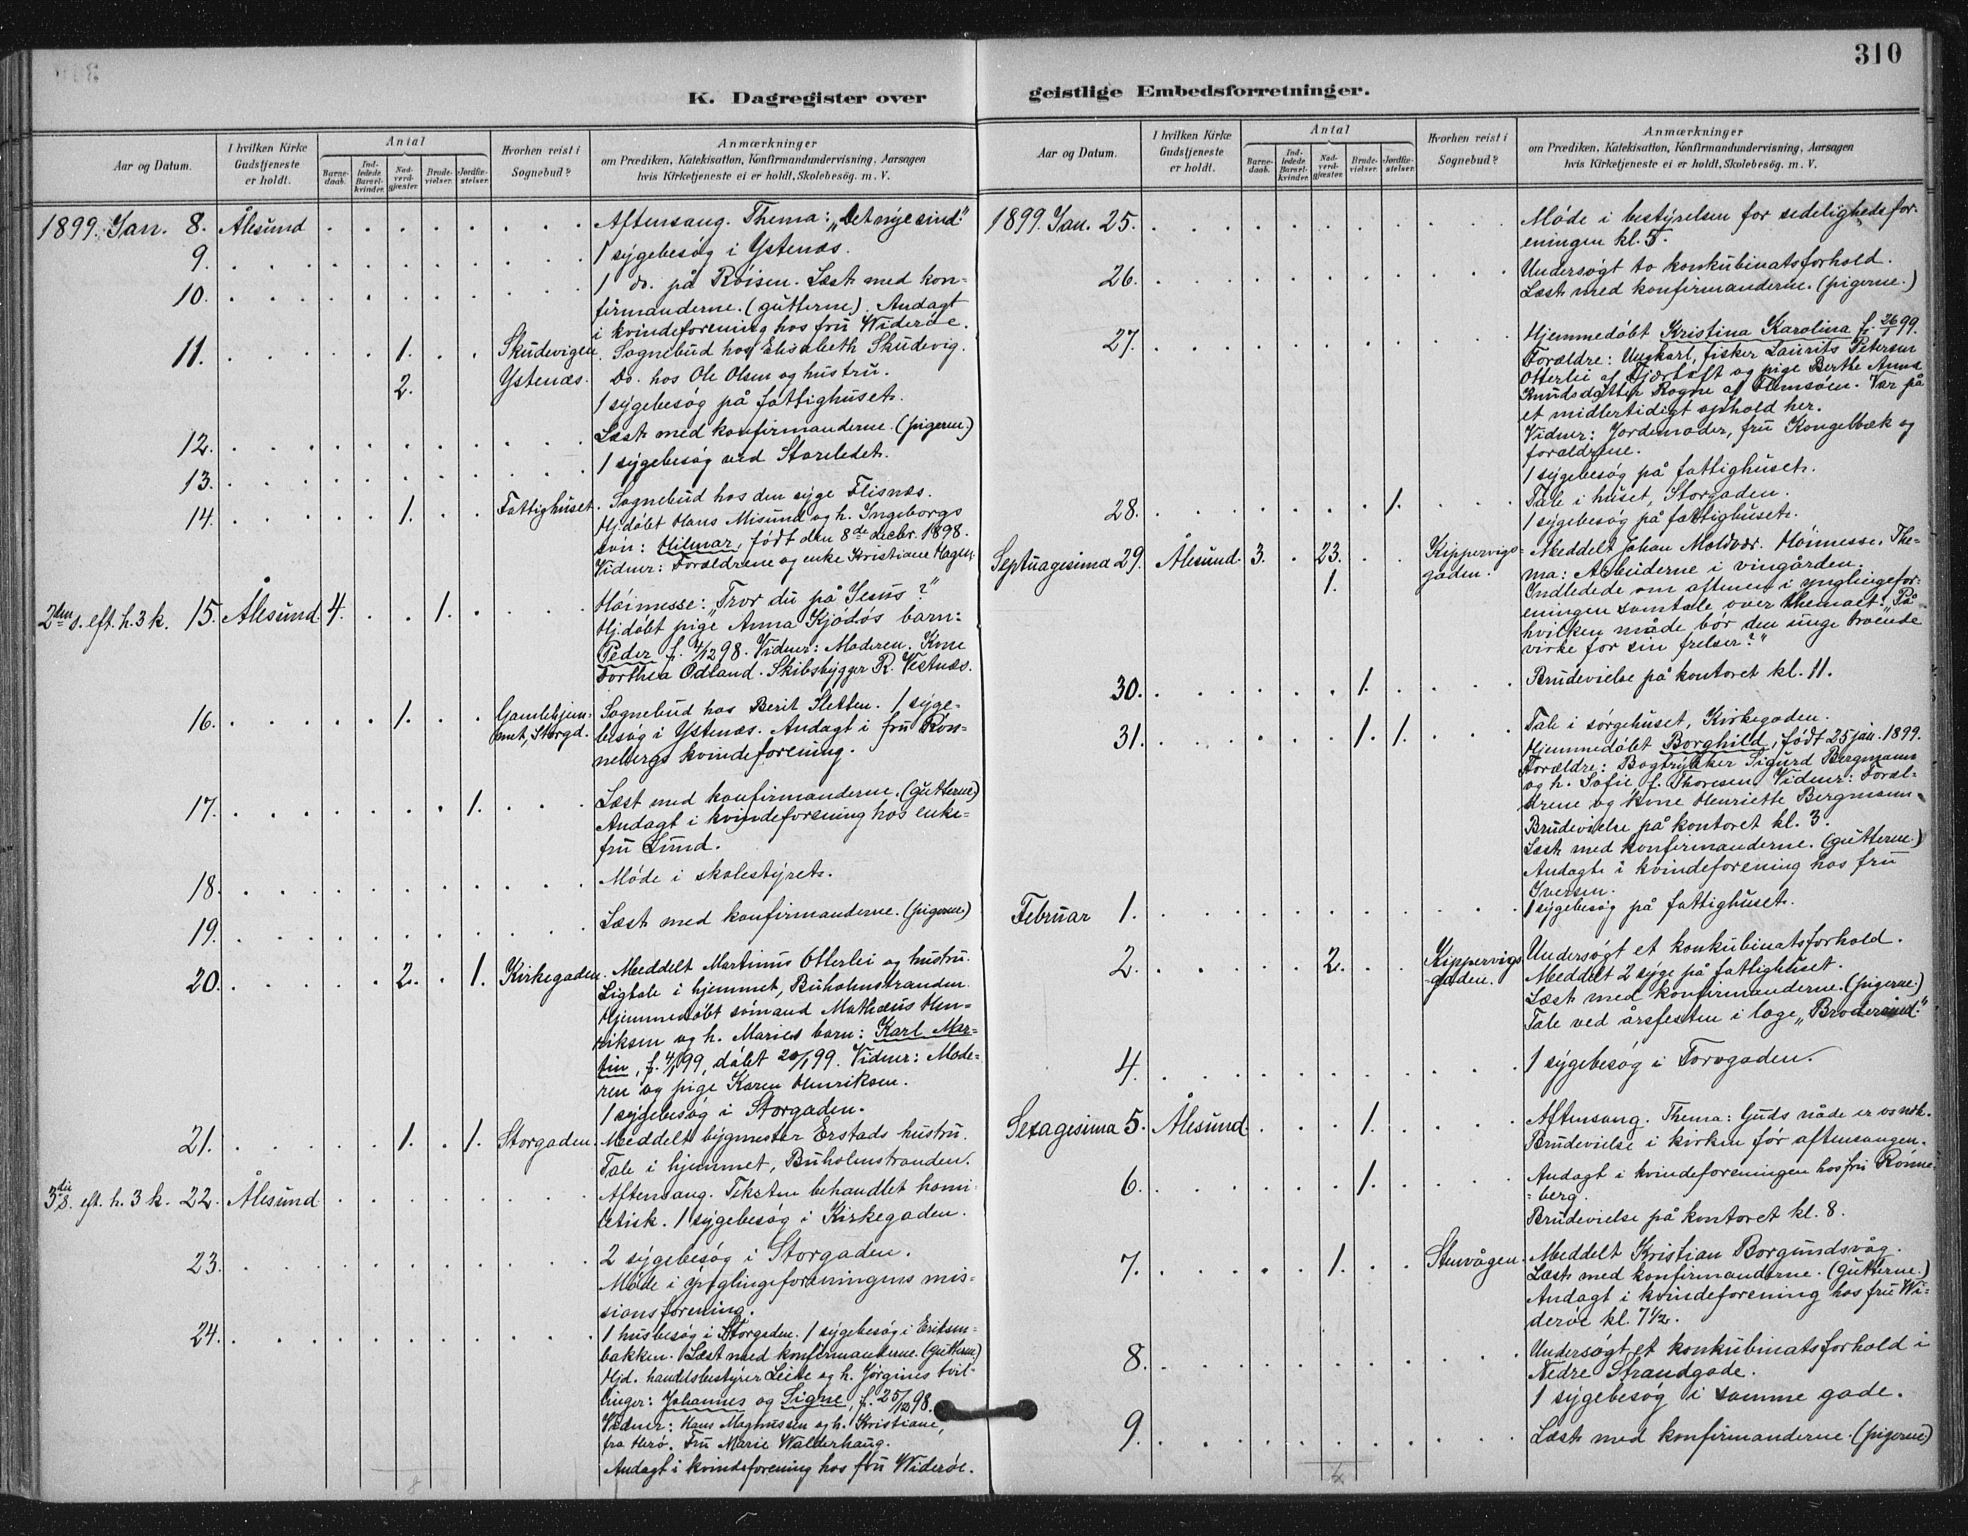 310
K. Dagregister over
Aar og Datum.
I hvilken Kirke Gudstjeneste er holdt.
Antal
Barnedaab.
Indledede Barselkvinder.
Nadverdgjæster.
Brudevielser.
Jordfæstelser.
Hvorhen reist i Sognebud?
Anmærkninger
om Prædiken, Katekisation, Konfirmandundervisning, Aarsagen
hvis Kirketjeneste ei er holdt, Skolebesøg. m. V.
1899. Jan. 8. Ålesund Aftensang. Thema: „Det nye sind."
9. 1 sygebesøg i Ystenæs.
10. 1 do. på Røisen. Læst med kon-
firmanderne. (gutterne). Andagt
i kvindeforening hos fru Widerøe.
11. 1. Skudevigen. Sognebud hos Elisabeth Skudevig.
2. Ystenæs. Do. hos Ole Olsen og hustru.
1 sygebesøg på fattighuset.
12. Læst med konfirmanderne. (pigerne.)
13. 1 sygebesøg ved Storeledet.
14. 1. Fattighuset. Sognebud hos den syge Flisnæs.
Hj.døbt Hans Misund og h. Ingeborgs
søn: Hilmar, født den 8de decbr. 1898.
Vidner: Forældrene og enke Kristiane Hagen.
2den s. eft. h. 3 k. 15. Ålesund 4. 1. Høimesse: „Tror du på Jesus?"
Hj.døbt pige Anna Kjødøs barn:
Peder f. 4/12 98. Vidner: Moderen. Kone
Dorthea Ödland. Skibsbygger R. Vestnæs.
16. 1. Gamlehjem- Sognebud hos Berit Sletten. 1 syge-
met, Storgd. besøg i Ystenæs. Andagt i fru Røn-
nebergs kvindeforening.
17. 1. Læst med konfirmanderne. (gutterne)
Andagt i kvindeforening hos enke-
fru Lund.
18. Møde i skolestyret.
19. Læst med konfirmanderne. (pigerne.)
20. 2. 1. Kirkegaden. Meddelt Martinus Otterlei og hustru.
Ligtale i hjemmet, Buholmstranden.
Hjemmedøbt sømand Mathæus Hen-
riksen og h. Maries barn: Karl Mar-
tin, f. 4/1 99, døbt 20/1 99. Vidner: Mode-
ren og pige Karen Henriksen.
1 sygebesøg i Storgaden.
21. 1. 1. Storgaden. Meddelt bygmester Erstads hustru.
Tale i hjemmet, Buholmstranden.
3die s. eft. h. 3 k. 22. Ålesund Aftensang. Teksten behandlet homi-
letisk. 1 sygebesøg i Kirkegaden.
23. 2 sygebesøg i Storgaden.
Møde i ynglingeforeningens mis-
sionsforening.
24. 1 husbesøg i Storgaden. 1 sygebesøg i Eriksen-
bakken. Læst med konfirmanderne. (Gutterne)
Hjd. handelsbestyrer Leite og h. Jørgines tvil-
linger: Johannes og Signe, f. 25/12 98.
Vidner: Hans Magnussen og h. Kristiane,
fra Herø. Fru Marie Walderhaug.
Andagt i kvindeforening hos fru Widerøe.
8
geistlige Embedsforretninger.
Aar og Datum.
I hvilken Kirke Gudstjeneste er holdt.
Antal
Barnedaab.
Indledede Barselkvinder.
Nadverdgjæster.
Brudevielser.
Jordfæstelser.
Hvorhen reist i Sognebud?
Anmærkninger
om Prædiken, Katekisation, Konfirmandundervisning, Aarsagen
hvis Kirketjeneste ei er holdt, Skolebesøg. m. V.
1899. Jan. 25. Møde i bestyrelsen for sedelighedsfor-
eningen kl. 5.
26. Undersøgt to konkubinatsforhold.
Læst med konfirmanderne. (pigerne.)
27. Hjemmedøbt Kristina Karolina f. 26/1 99.
Forældre: Ungkarl, fisker Laurits Petersen
Otterlei af Fjørtoft og pige Berthe Anna
Knudsdatter Rogne af Flemsøen. Var på
et midlertidigt ophold her.
Vidner: Jordemoder, fru Kongelbæk og
forældrene.
1 sygebesøg på fattighuset.
28. 1. Tale i huset, Storgaden.
1 sygebesøg på fattighuset.
Septuagesima 29. Ålesund. 3. 23. Kippervigs- Meddelt Johan Moldvær. Høimesse. The-
1. gaden. ma: Arbeiderne i vingården.
Indledede om aftenen i ynglingefor-
eningen samtale over themaet: „På
hvilken måde bør den unge troende
virke for sin frelser?"
30. 1. Brudevielse på kontoret kl. 11.
31. 1. 1. Tale i sørgehuset, Kirkegaden.
Hjemmedøbt Borghild, født 25 jan. 1899.
Forældre: Bogtrykker Sigurd Bergmann
og h. Sofie f. Thoresen. Vidner: Foræl-
drene og kone Henriette Bergmann.
Brudevielse på kontoret kl. 3.
Læst med konfirmanderne. (gutterne.)
Andagt i kvindeforening hos fru
Iversen.
Februar 1. 1 sygebesøg på fattighuset.
2. 2. Kippervigs- Undersøgt et konkubinatsforhold.
gaden. Meddelt 2 syge på fattighuset.
Læst med konfirmanderne. (pigerne.)
Tale ved årsfesten i loge „Brodersind."
4. 1 sygebesøg i Torvgaden.
Sexagesima 5. Ålesund. 1. Aftensang. Thema: Guds nåde er os nok.
Brudevielse i kirken før aftensangen.
6. 1. Andagt i kvindeforeningen hos fru Rønne-
berg.
Brudevielse på kontoret kl. 8.
7. 1. Stenvågen. Meddelt Kristian Borgundsvåg.
Læst med konfirmanderne. (Gutterne.)
Andagt i kvindeforening hos fru Wi-
derøe kl. 7 1/2.
8. Undersøgt et konkubinatsforhold i
Nedre Strandgade.
1 sygebesøg i samme gade.
9. Læst med konfirmanderne. (pigerne)